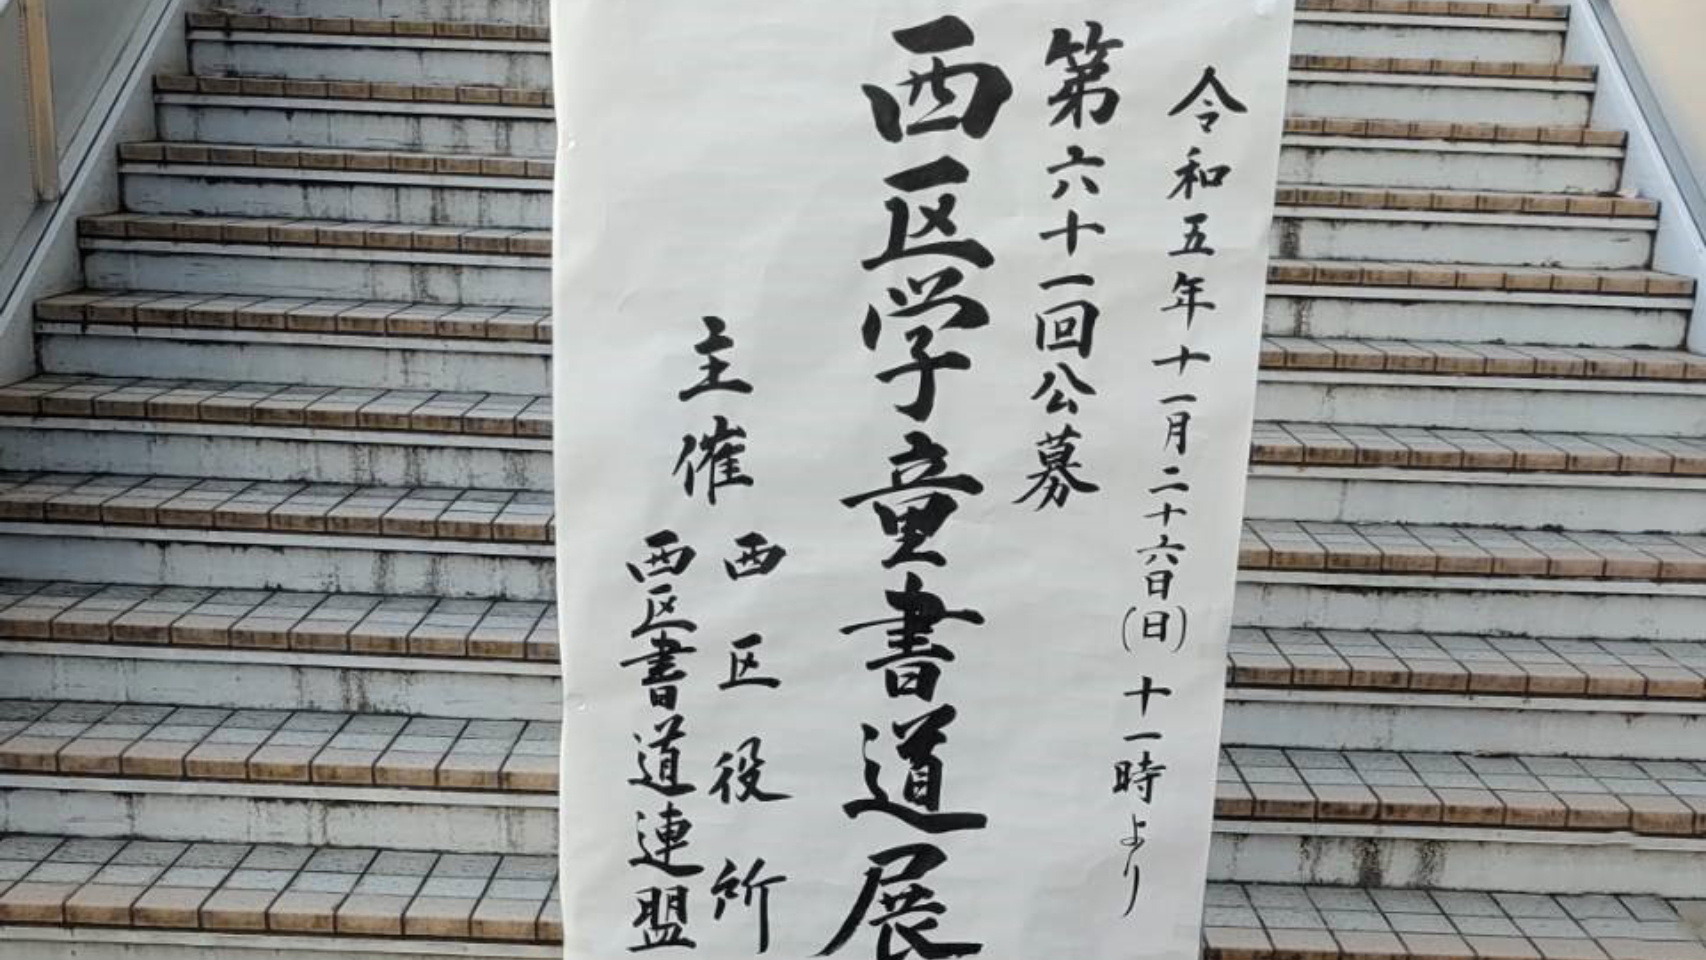 令和五年十一月二十六日(日) 十一時より
第六十一回公募
西区学童書道展
主催
西区役所
西区書道連盟